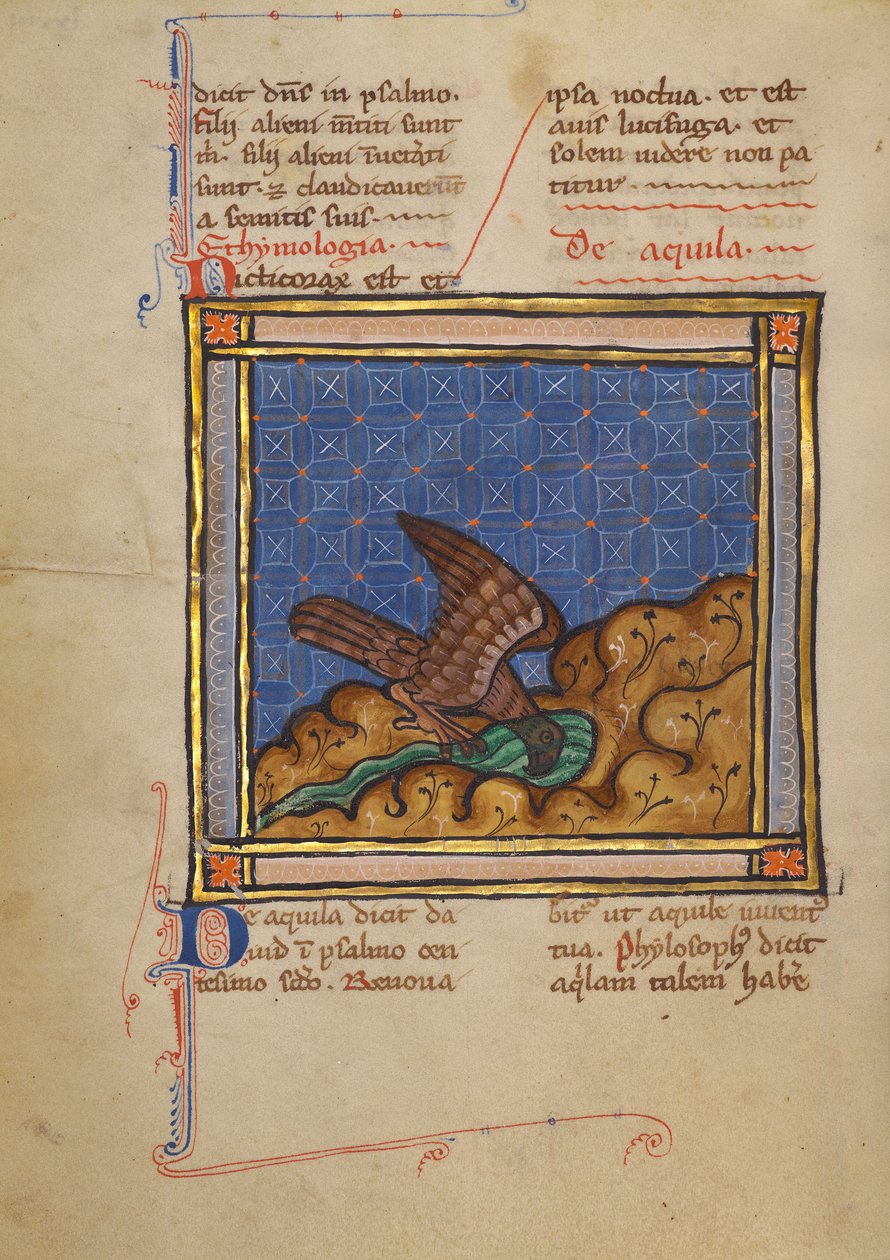 dicit dn̄s in psalmo.
Filij alieni m̄titi sunt
m̄. filij alieni īuet̄ati
sunt. ⁊ claudicauerūt
a semitis suis.
Ethymologia.
Nicticorax est et
ipsa noctua. et est
auis lucifuga. et
solem uidere non pa
titur.
De aquila.
De aquila dicit da
uid ī psalmo cen
tesimo scd̄o. Renoua
bit᷑ ut aquile iuuent᷑
tua. Phylosophꝰ dicit
aq̄lam talem hab̄e